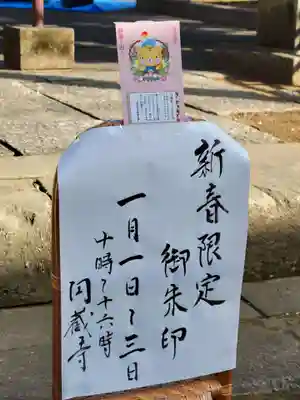 新春限定
御朱印
一月一日〜三日
十時〜十六時
円蔵寺